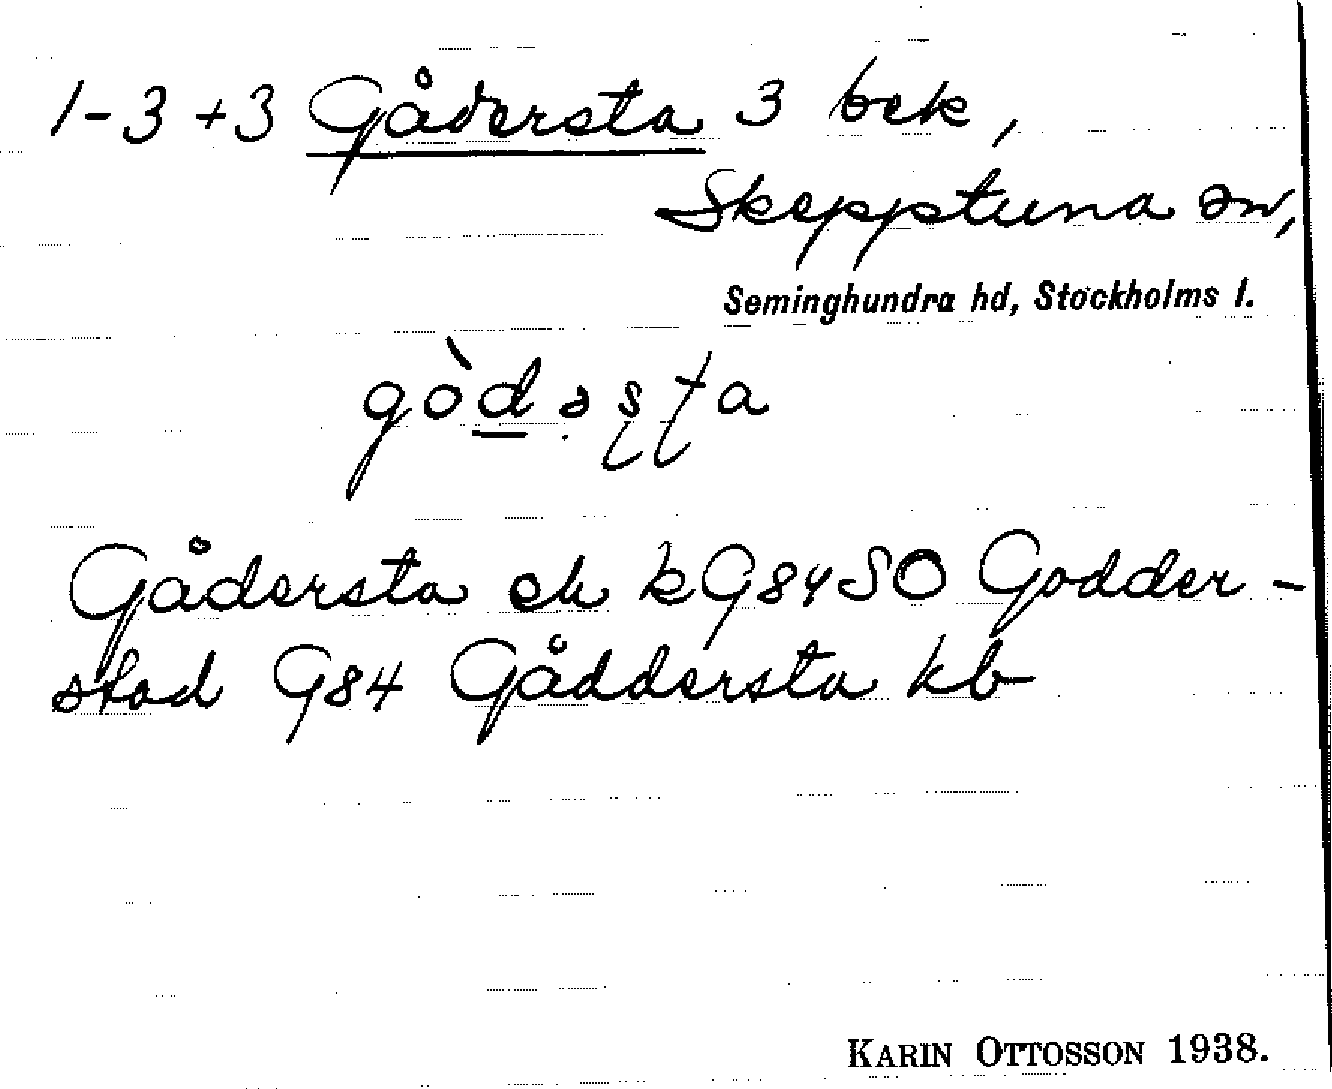 1-3+3 Gådersta 3 bek,
Skepptuna sn,
Seminghundra hd, Stockholms l.
gòdəṣṭa
Gådersta ek k G84 SO Godder-
stad G84 Gåddersta kb
KARIN OTTOSSON 1938.